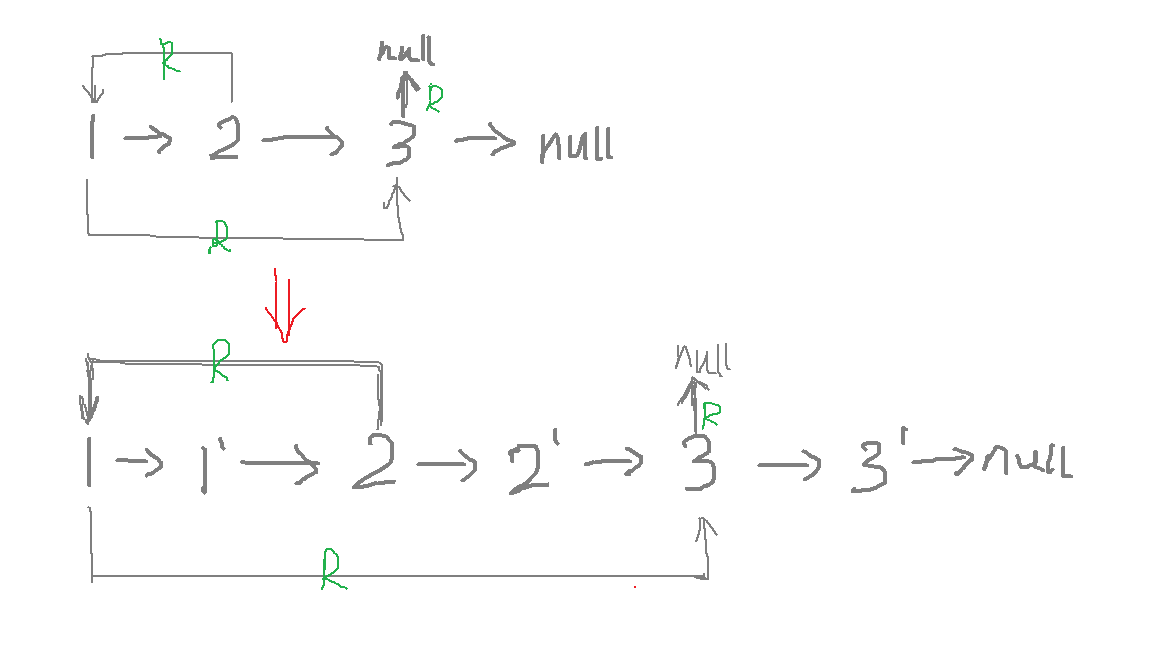 R
null
R
1 → 2 → 3 → null
R
R
null
R
1 → 1' → 2 → 2' → 3 → 3' → null
R